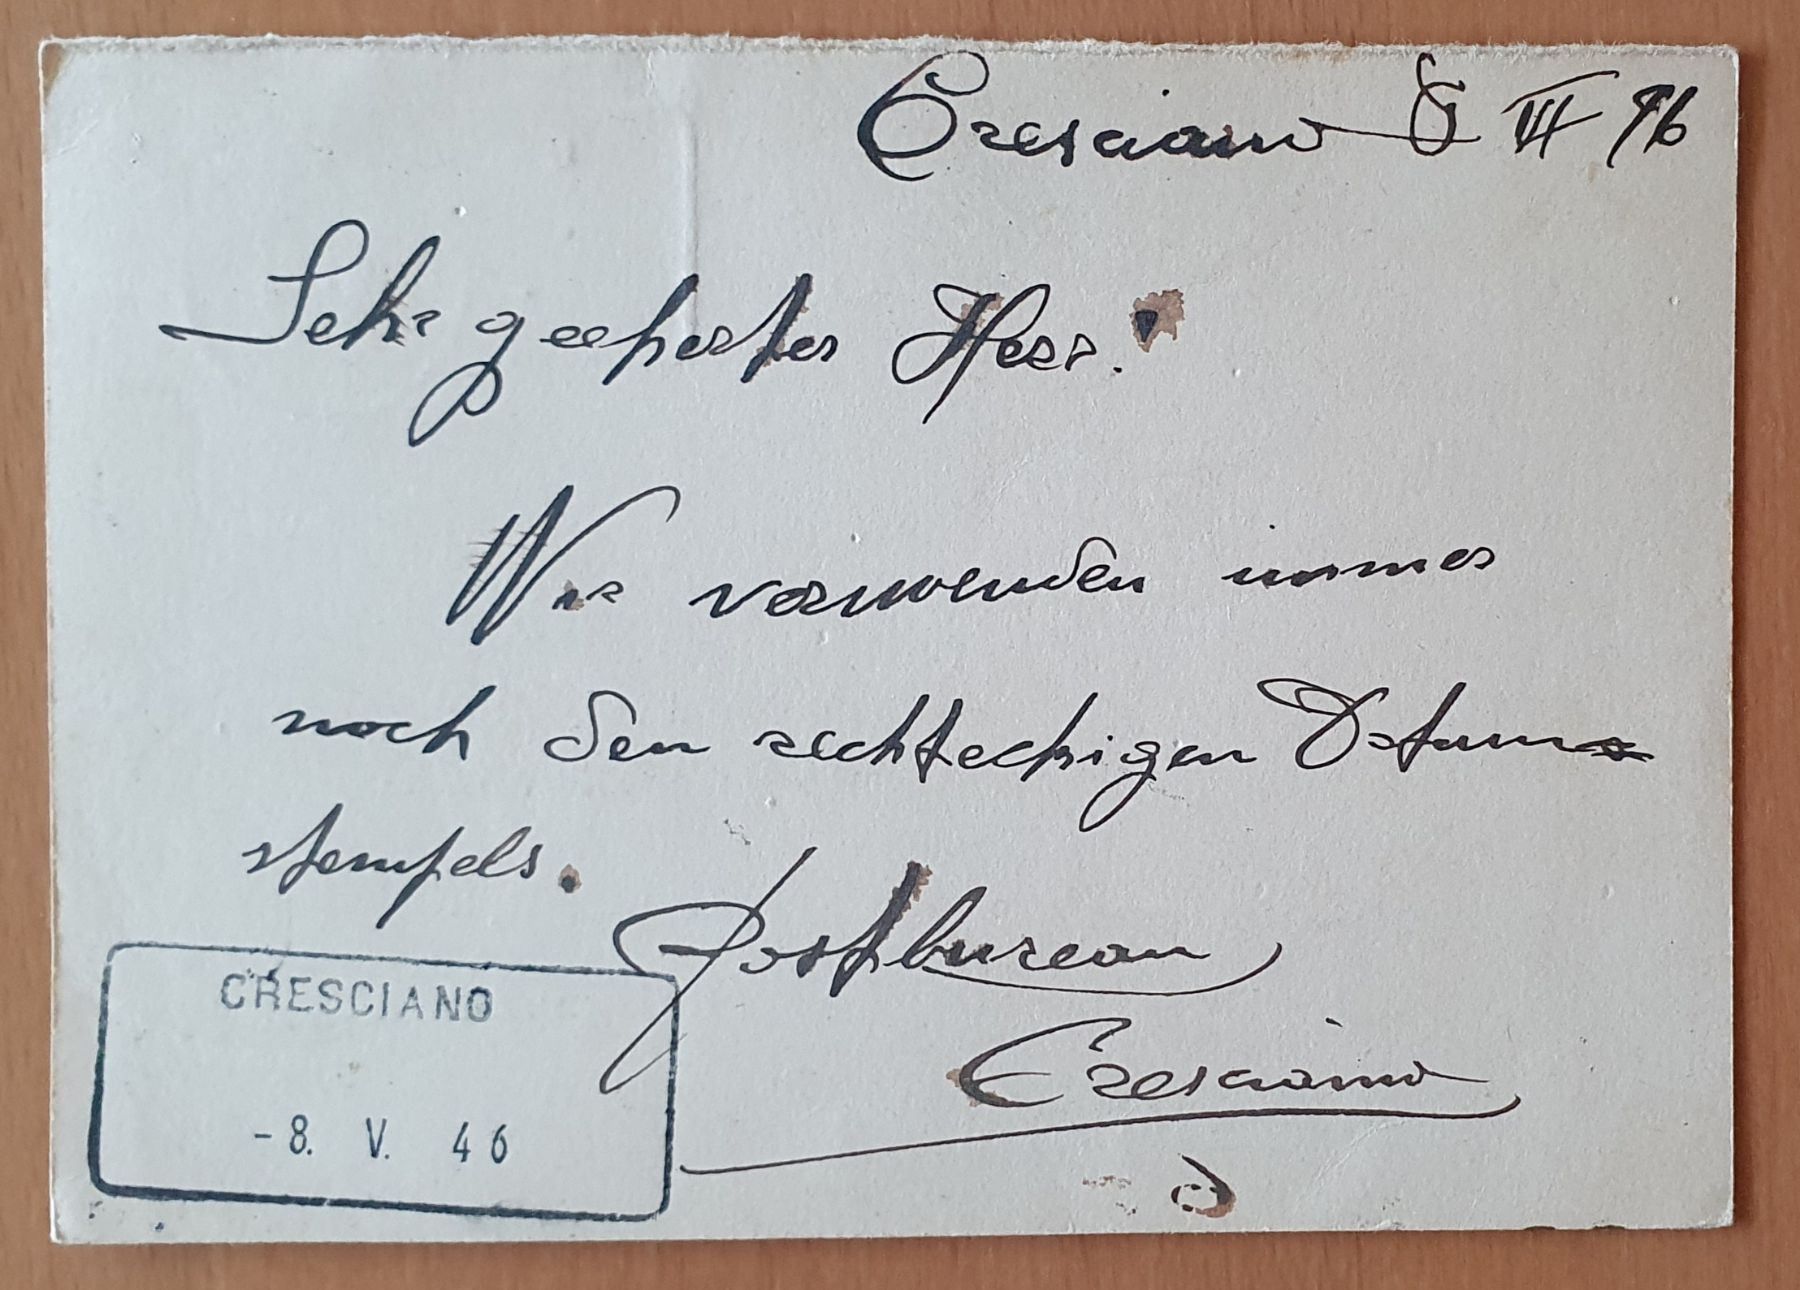 Cresciano 8 VII 46
Sehr geehrter Herr!
Wir verwenden immer
noch den rechteckigen Datum
stempels.
Postbureau
Cresciano
CRESCIANO
-8. V. 46